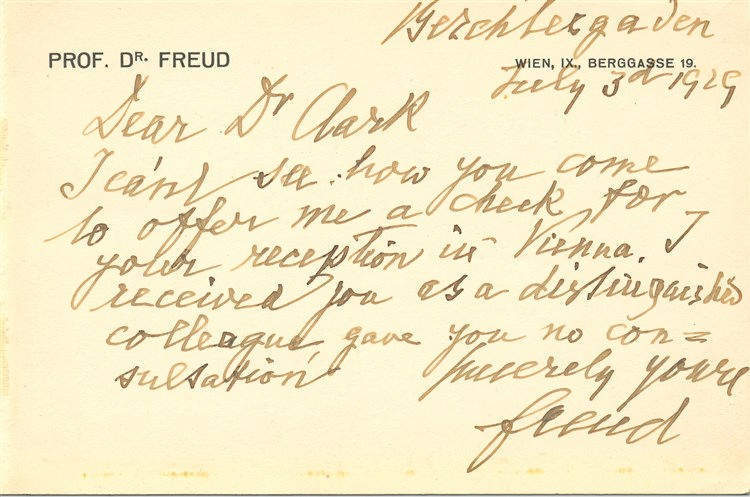 Berchtesgaden
PROF. DR. FREUD
WIEN, IX., BERGGASSE 19.
July 3d 1929
Dear Dr Clark
I can't see how you come
to offer me a check for
your reception in Vienna. I
received you as a distinguished
colleague, gave you no con=
sultation
Sincerely yours
Freud